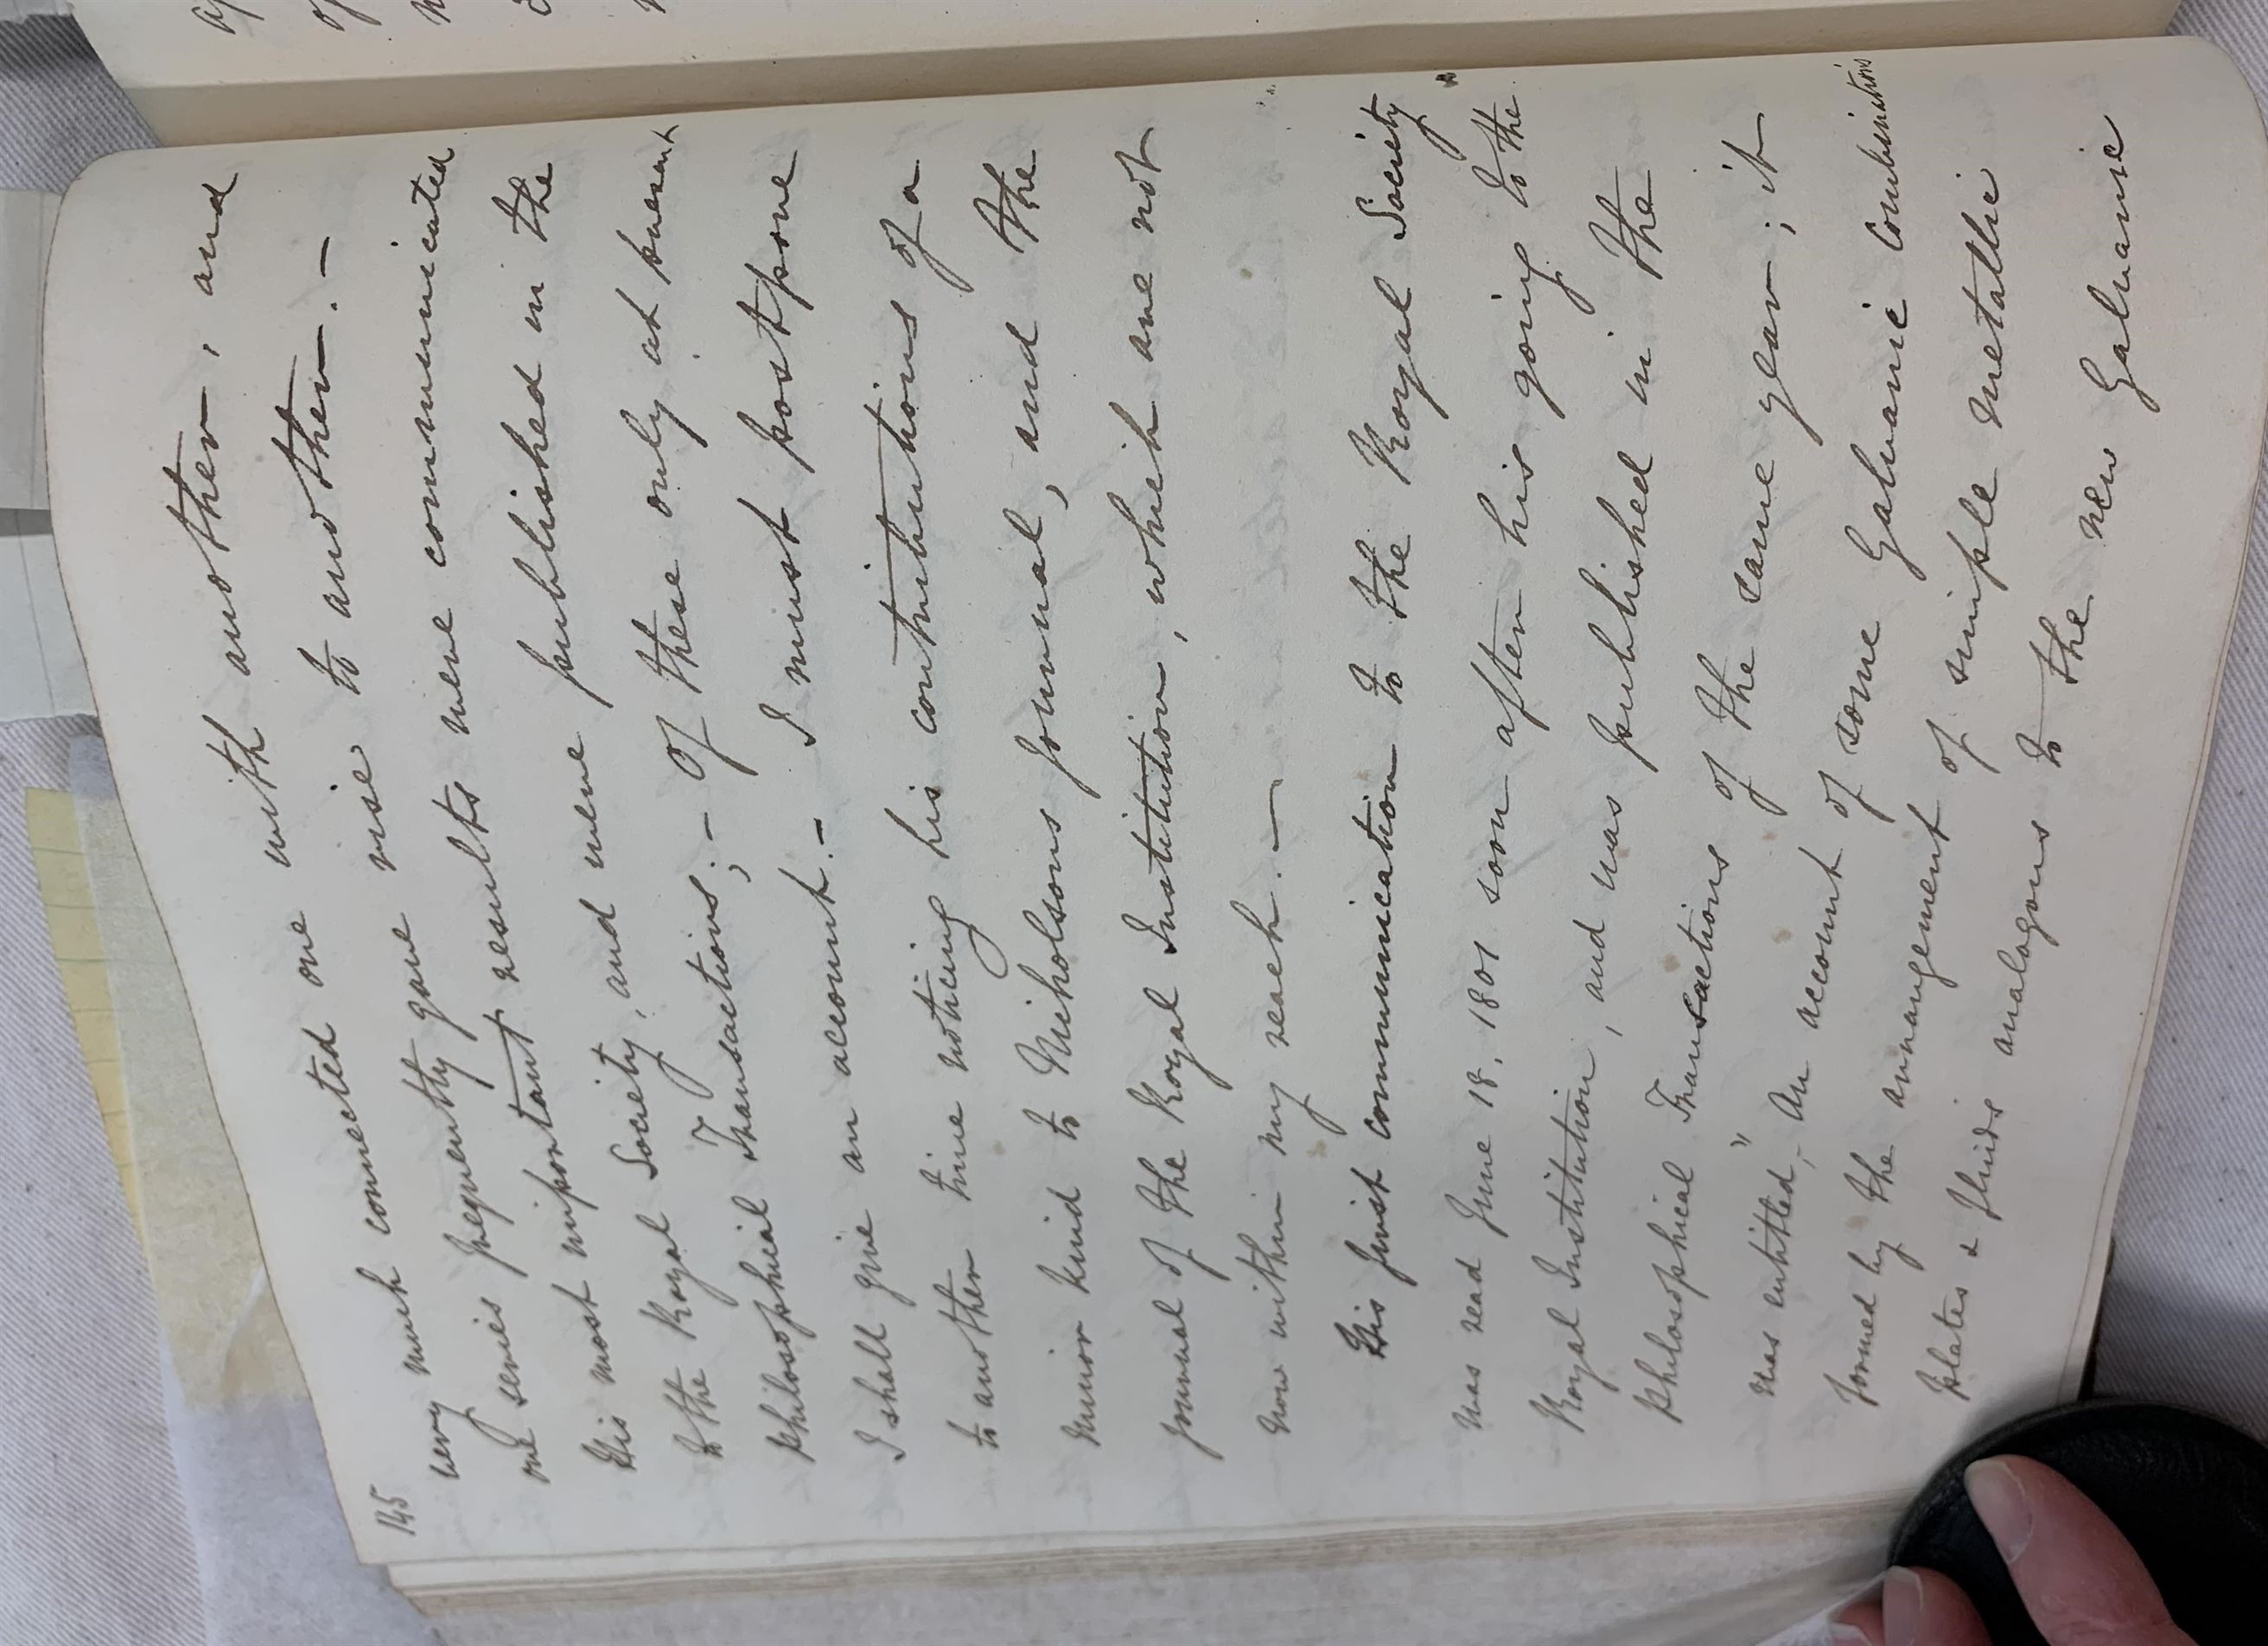 145
very much connected one with another, and
one series frequently gave rise to another. —
His most important results were communicated
to the Royal Society, and were published in the
Philosophical Transactions; — Of these only at present
I shall give an account. — I must postpone
to another time noticing his contributions of a
minor kind to Nicholsons Journal, and the
Journal of the Royal Institution, which are not
now within my reach. —
His first communication to the Royal Society
was read June 18, 1801 soon after his going to the
Royal Institution, and was published in the
Philosophical Transactions of the same year; it
was entitled, "An account of some Galvanic Combinations
formed by the arrangement of simple metallic
plates & fluids analogous to the new Galvanic